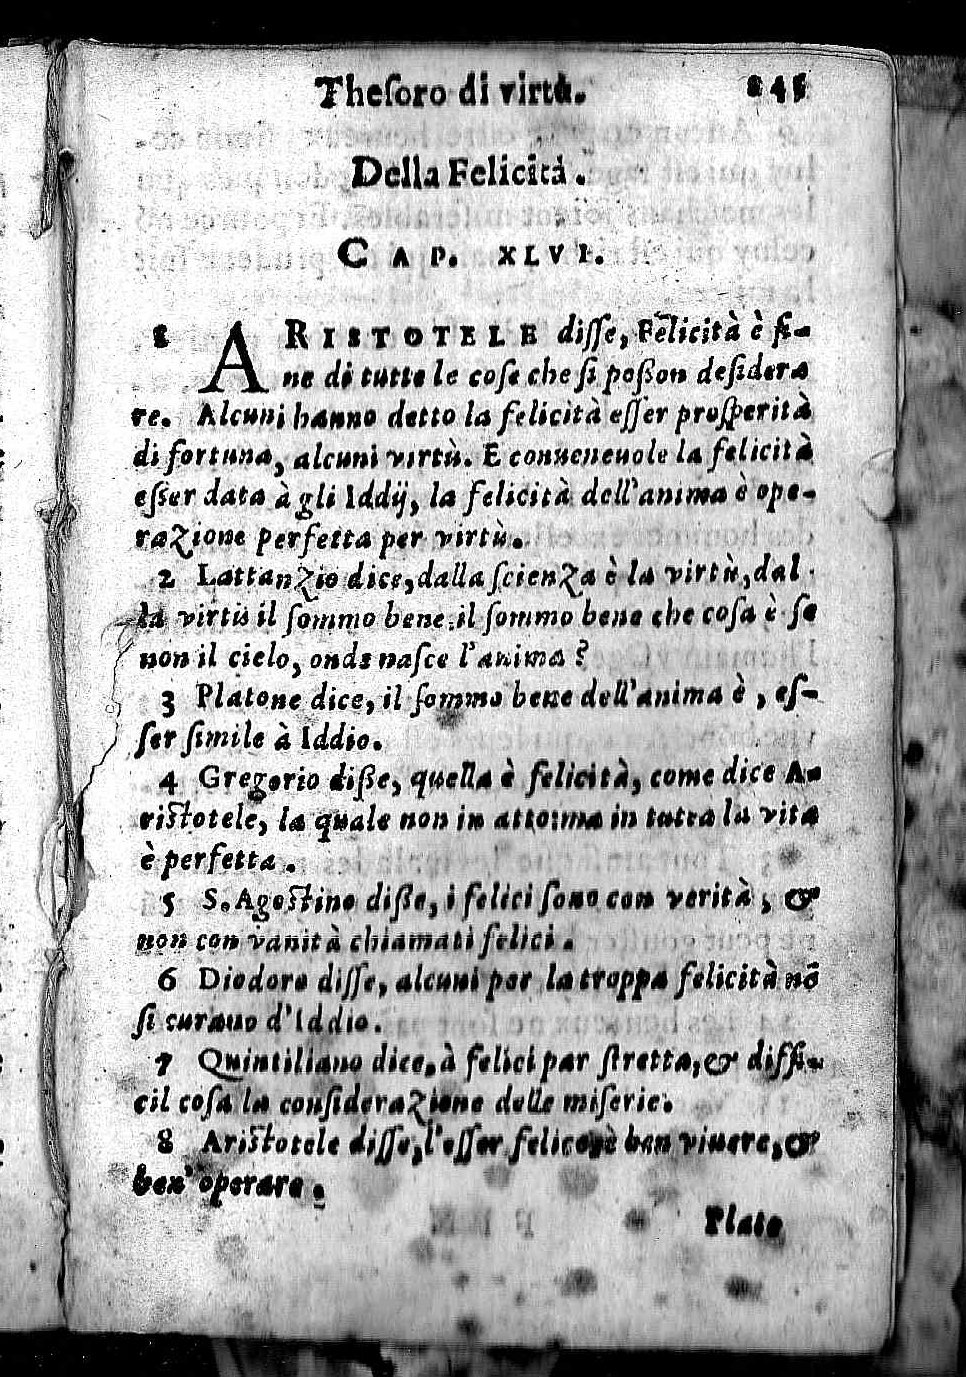 Theſoro di virtù. 245
Della Felicità.
CAP. XLVI.
1 ARISTOTELE diſſe, Felicità è fi-
ne di tutte le coſe che ſi poßon deſidera
re. Alcuni hanno detto la felicità eſſer proſperità
di fortuna, alcuni virtù. E conueneuole la felicità
eſſer data à gli Iddij, la felicità dell'anima è ope-
razione perfetta per virtù.
2 Lattanzio dice, dalla ſcienza è la virtù, dal
la virtù il ſommo bene, il ſommo bene che coſa è ſe
non il cielo, onde naſce l'anima?
3 Platone dice, il ſommo bene dell'anima è, eſ-
ſer ſimile à Iddio.
4 Gregorio diße, quella è felicità, come dice A-
riſtotele, la quale non in atto: ma in tutta la vita
è perfetta.
5 S. Agoſtino diße, i felici ſono con verità, &
non con vanità chiamati felici.
6 Diodoro diſſe, alcuni per la troppa felicità nõ
ſi curano d'Iddio.
7 Quintiliano dice, à felici par ſtretta, & diffi-
cil coſa la conſiderazione delle miſerie.
8 Ariſtotele diſſe, l'eſſer felice, è ben viuere, &
ben' operare.
Plato